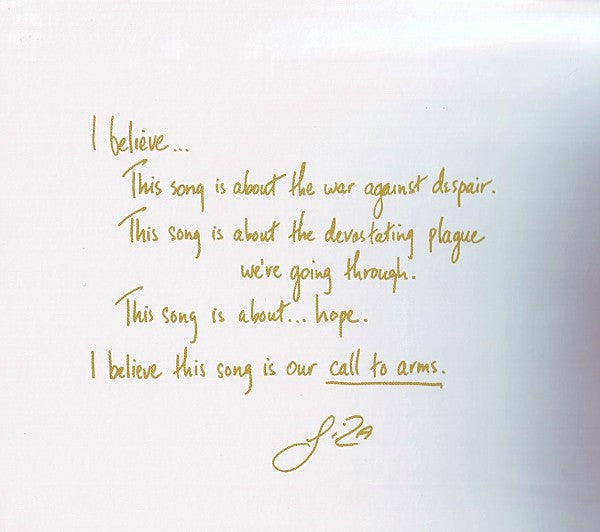 I believe...
This song is about the war against despair.
This song is about the devastating plague
we're going through.
This song is about... hope.
I believe this song is our call to arms.